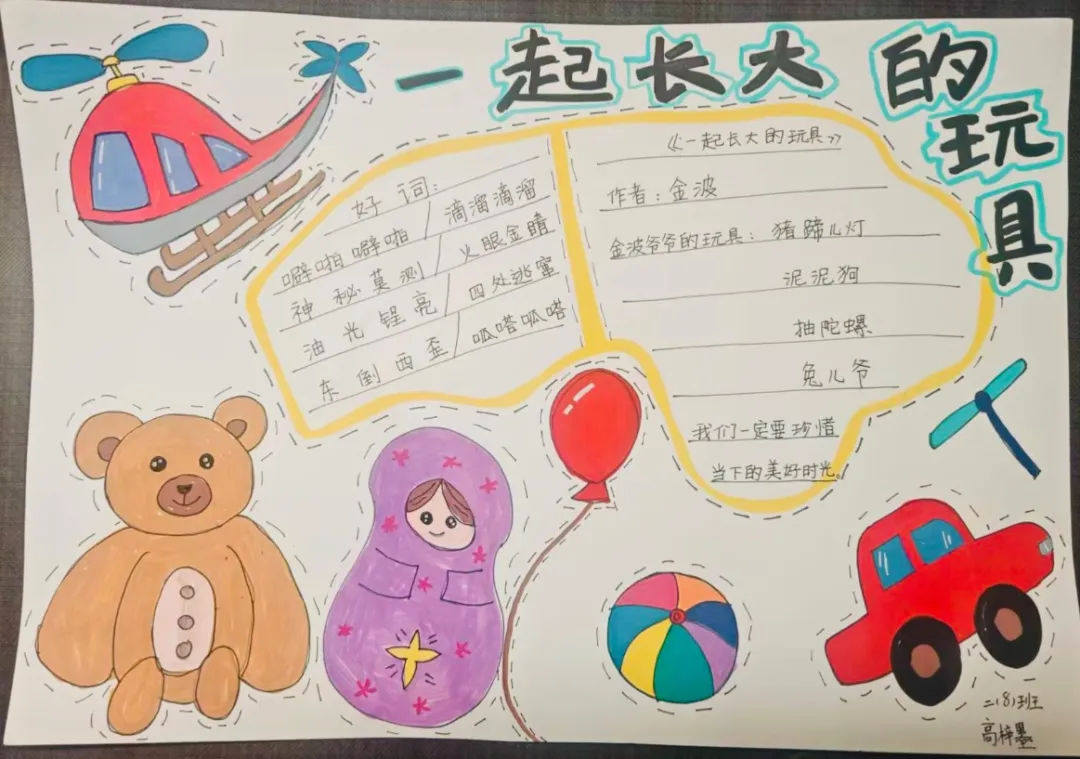 一起长大的玩具
好词:
噼啪噼啪/滴溜滴溜
神秘莫测/火眼金睛
油光锃亮/四处逃窜
东倒西歪/呱嗒呱嗒
《一起长大的玩具》
作者:金波
金波爷爷的玩具:猪蹄儿灯
泥泥狗
抽陀螺
兔儿爷
我们一定要珍惜
当下的美好时光。
二(8)班
高梓墨